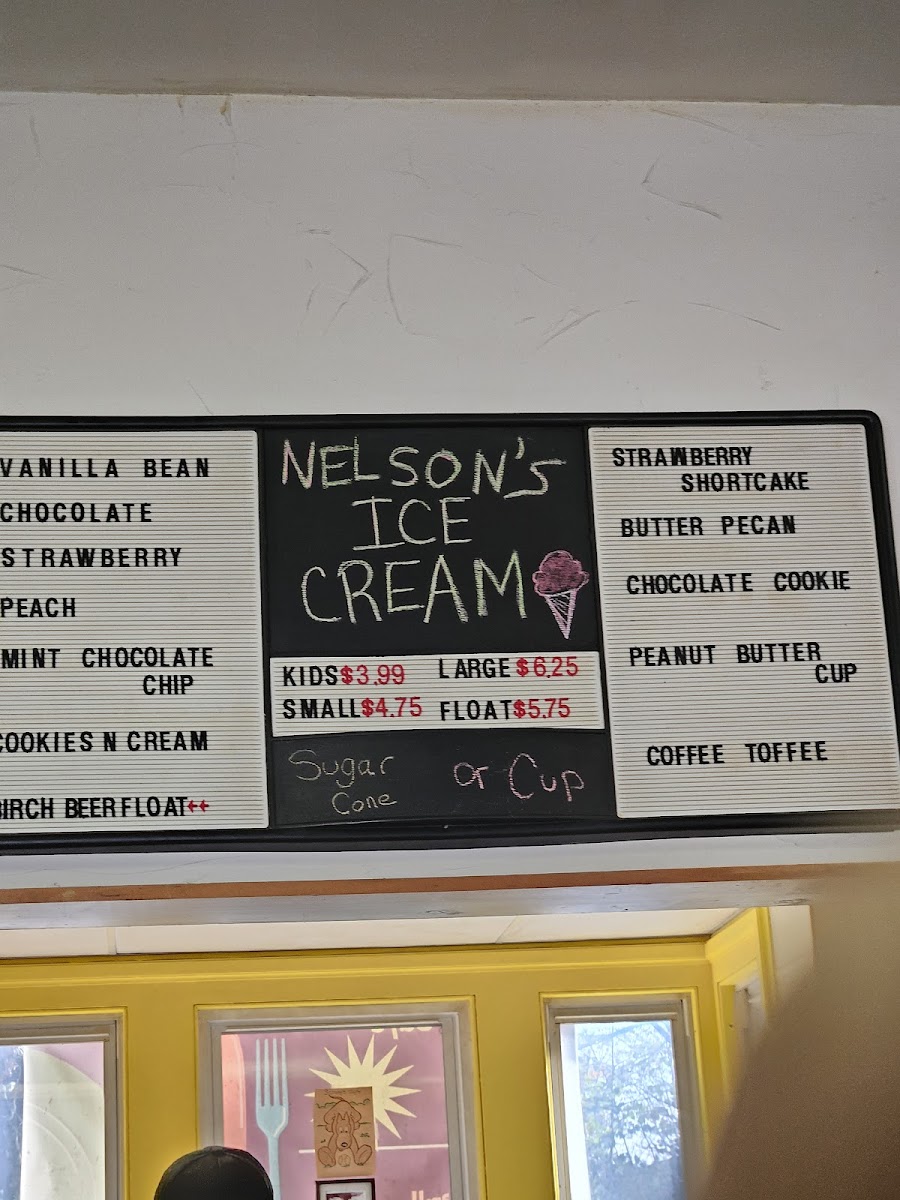 VANILLA BEAN
CHOCOLATE
STRAWBERRY
PEACH
MINT CHOCOLATE
CHIP
COOKIES N CREAM
BIRCH BEER FLOAT++
NELSON'S
ICE
CREAM
KIDS $3.99 LARGE $6.25
SMALL $4.75 FLOAT $5.75
Sugar
Cone
or Cup
STRAWBERRY
SHORTCAKE
BUTTER PECAN
CHOCOLATE COOKIE
PEANUT BUTTER
CUP
COFFEE TOFFEE